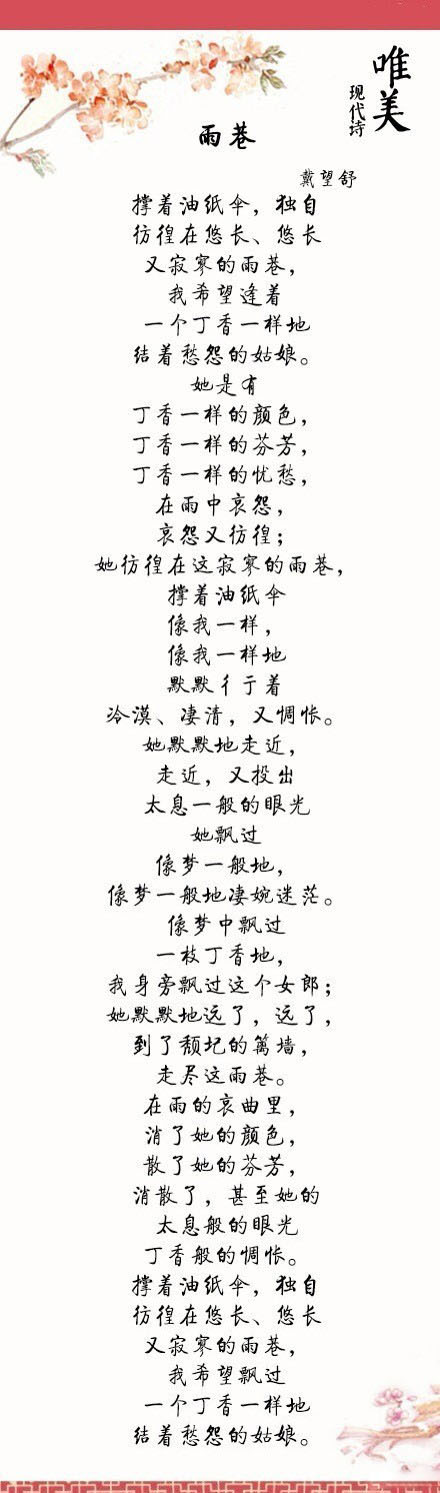 唯美
现代诗
雨巷
戴望舒
撑着油纸伞，独自
彷徨在悠长、悠长
又寂寥的雨巷，
我希望逢着
一个丁香一样地
结着愁怨的姑娘。
她是有
丁香一样的颜色，
丁香一样的芬芳，
丁香一样的忧愁，
在雨中哀怨，
哀怨又彷徨；
她彷徨在这寂寥的雨巷，
撑着油纸伞
像我一样，
像我一样地
默默彳亍着
冷漠、凄清，又惆怅。
她默默地走近，
走近，又投出
太息一般的眼光
她飘过
像梦一般地，
像梦一般地凄婉迷茫。
像梦中飘过
一枝丁香地，
我身旁飘过这个女郎；
她默默地远了，远了，
到了颓圮的篱墙，
走尽这雨巷。
在雨的哀曲里，
消了她的颜色，
散了她的芬芳，
消散了，甚至她的
太息般的眼光
丁香般的惆怅。
撑着油纸伞，独自
彷徨在悠长、悠长
又寂寥的雨巷，
我希望飘过
一个丁香一样地
结着愁怨的姑娘。